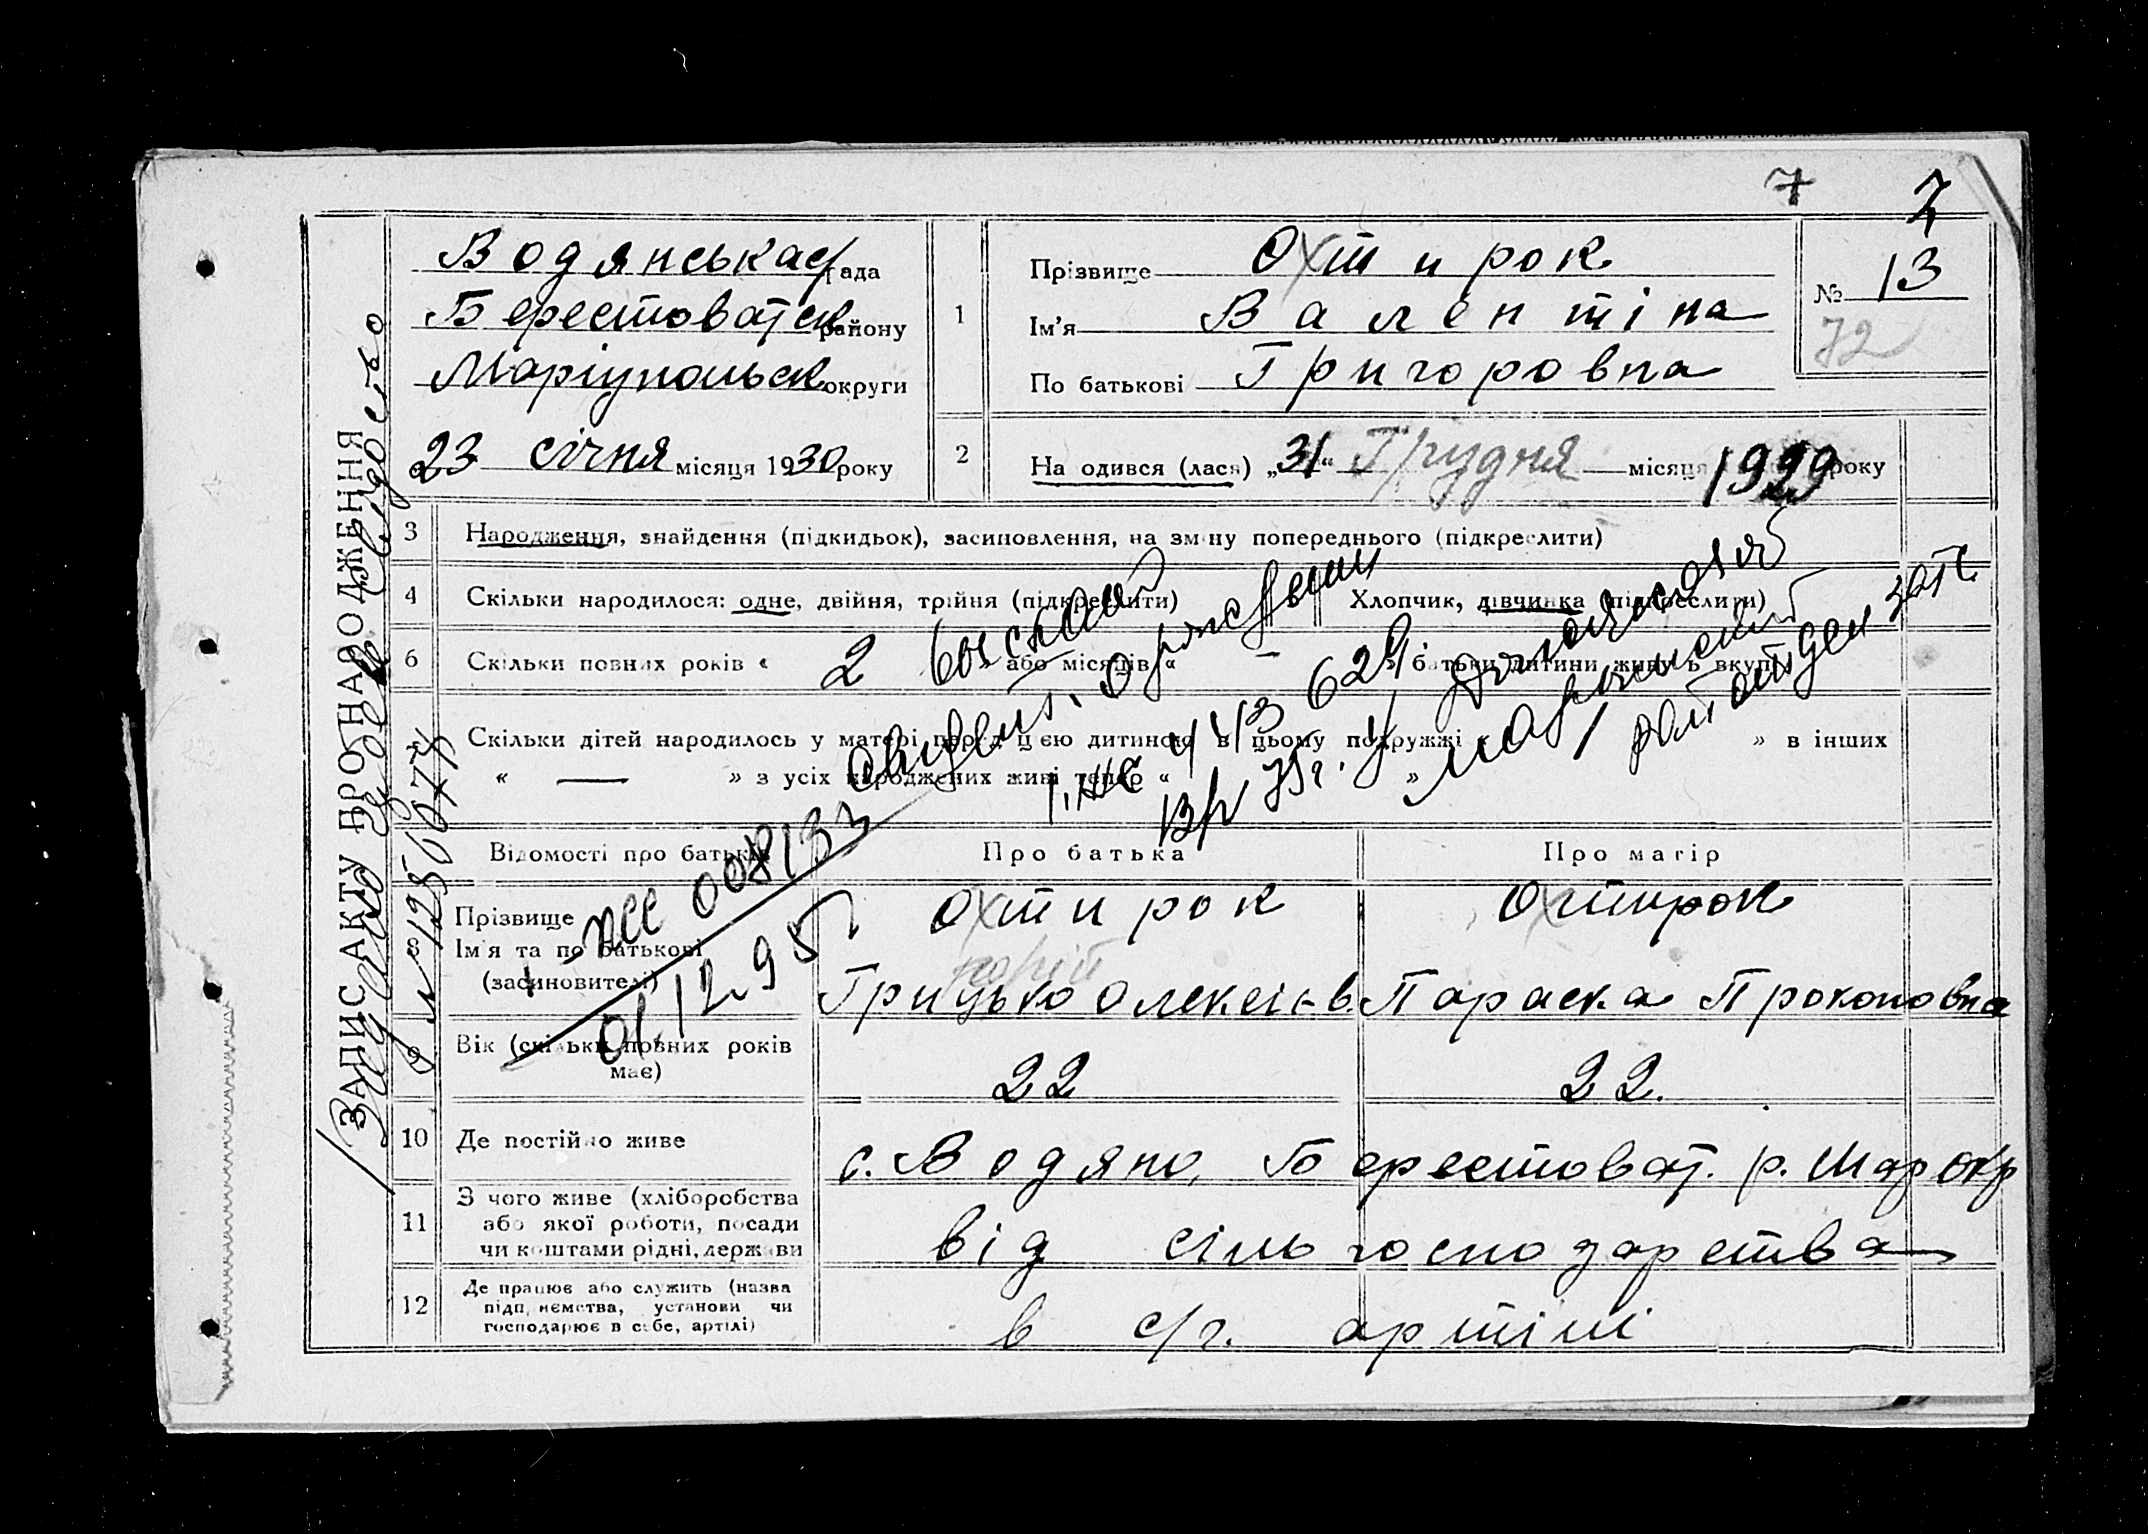 7 7
Водянська рада
Берестоватськ району
Маріупольськ округи
23 січня місяця 1930 року
1
Прізвище Охтирок
Ім'я Валентіна
По батькові Григоровна
№ 13
72
2
На одився (лася) „31“ Грудня місяця 1929 року
ЗАПИС АКТУ ПРО НАРОДЖЕННЯ
3 Народження, знайдення (підкидьок), засиновлення, на зміну попереднього (підкреслити)
4 Скільки народилося: одне, двійня, трійня (підкреслити) Хлопчик, дівчинка (підкреслити)
6 Скільки повних років « 2 » або місяців « — » батьки дитини живуть вкупі
Скільки дітей народилось у матері перед цією дитиною в цьому подружжі « » в інших
« — » з усіх народжених живі тепер « »
выслано свидет. о рождении
443629
75г.
008133
01.12.95
Відомості про батьків Про батька Про матір
8 Прізвище Ім'я та по батькові (засиновителі)
Охтирок Охтирок
Грицько Олексієв. Параска Прокоповна
9 Вік (скільки повних років має) 22 22.
10 Де постійно живе с. Водяно, Берестоват. р. Мар окр
11 З чого живе (хліборобства або якої роботи, посади чи коштами рідні, держави
від сільгосподарства
12 Де працює або служить (назва підприємства, установи чи господарює в себе, артілі)
в с/г. артілі